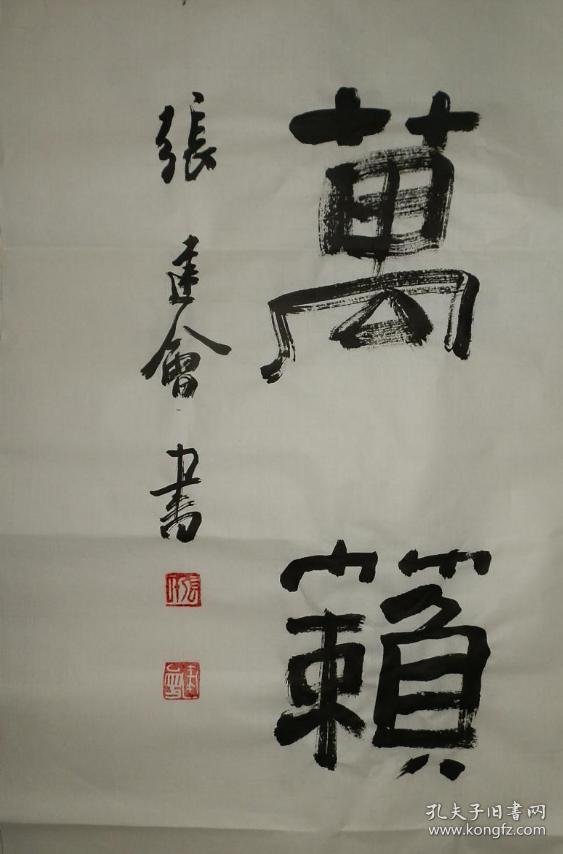 萬籟
張建會書
孔夫子旧书网
www.kongfz.com